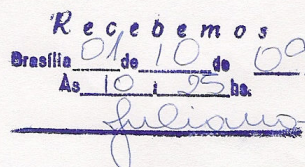 Recebemos
Brasília 01 de 10 de 09
Às 10 : 25 hs.
Juliana